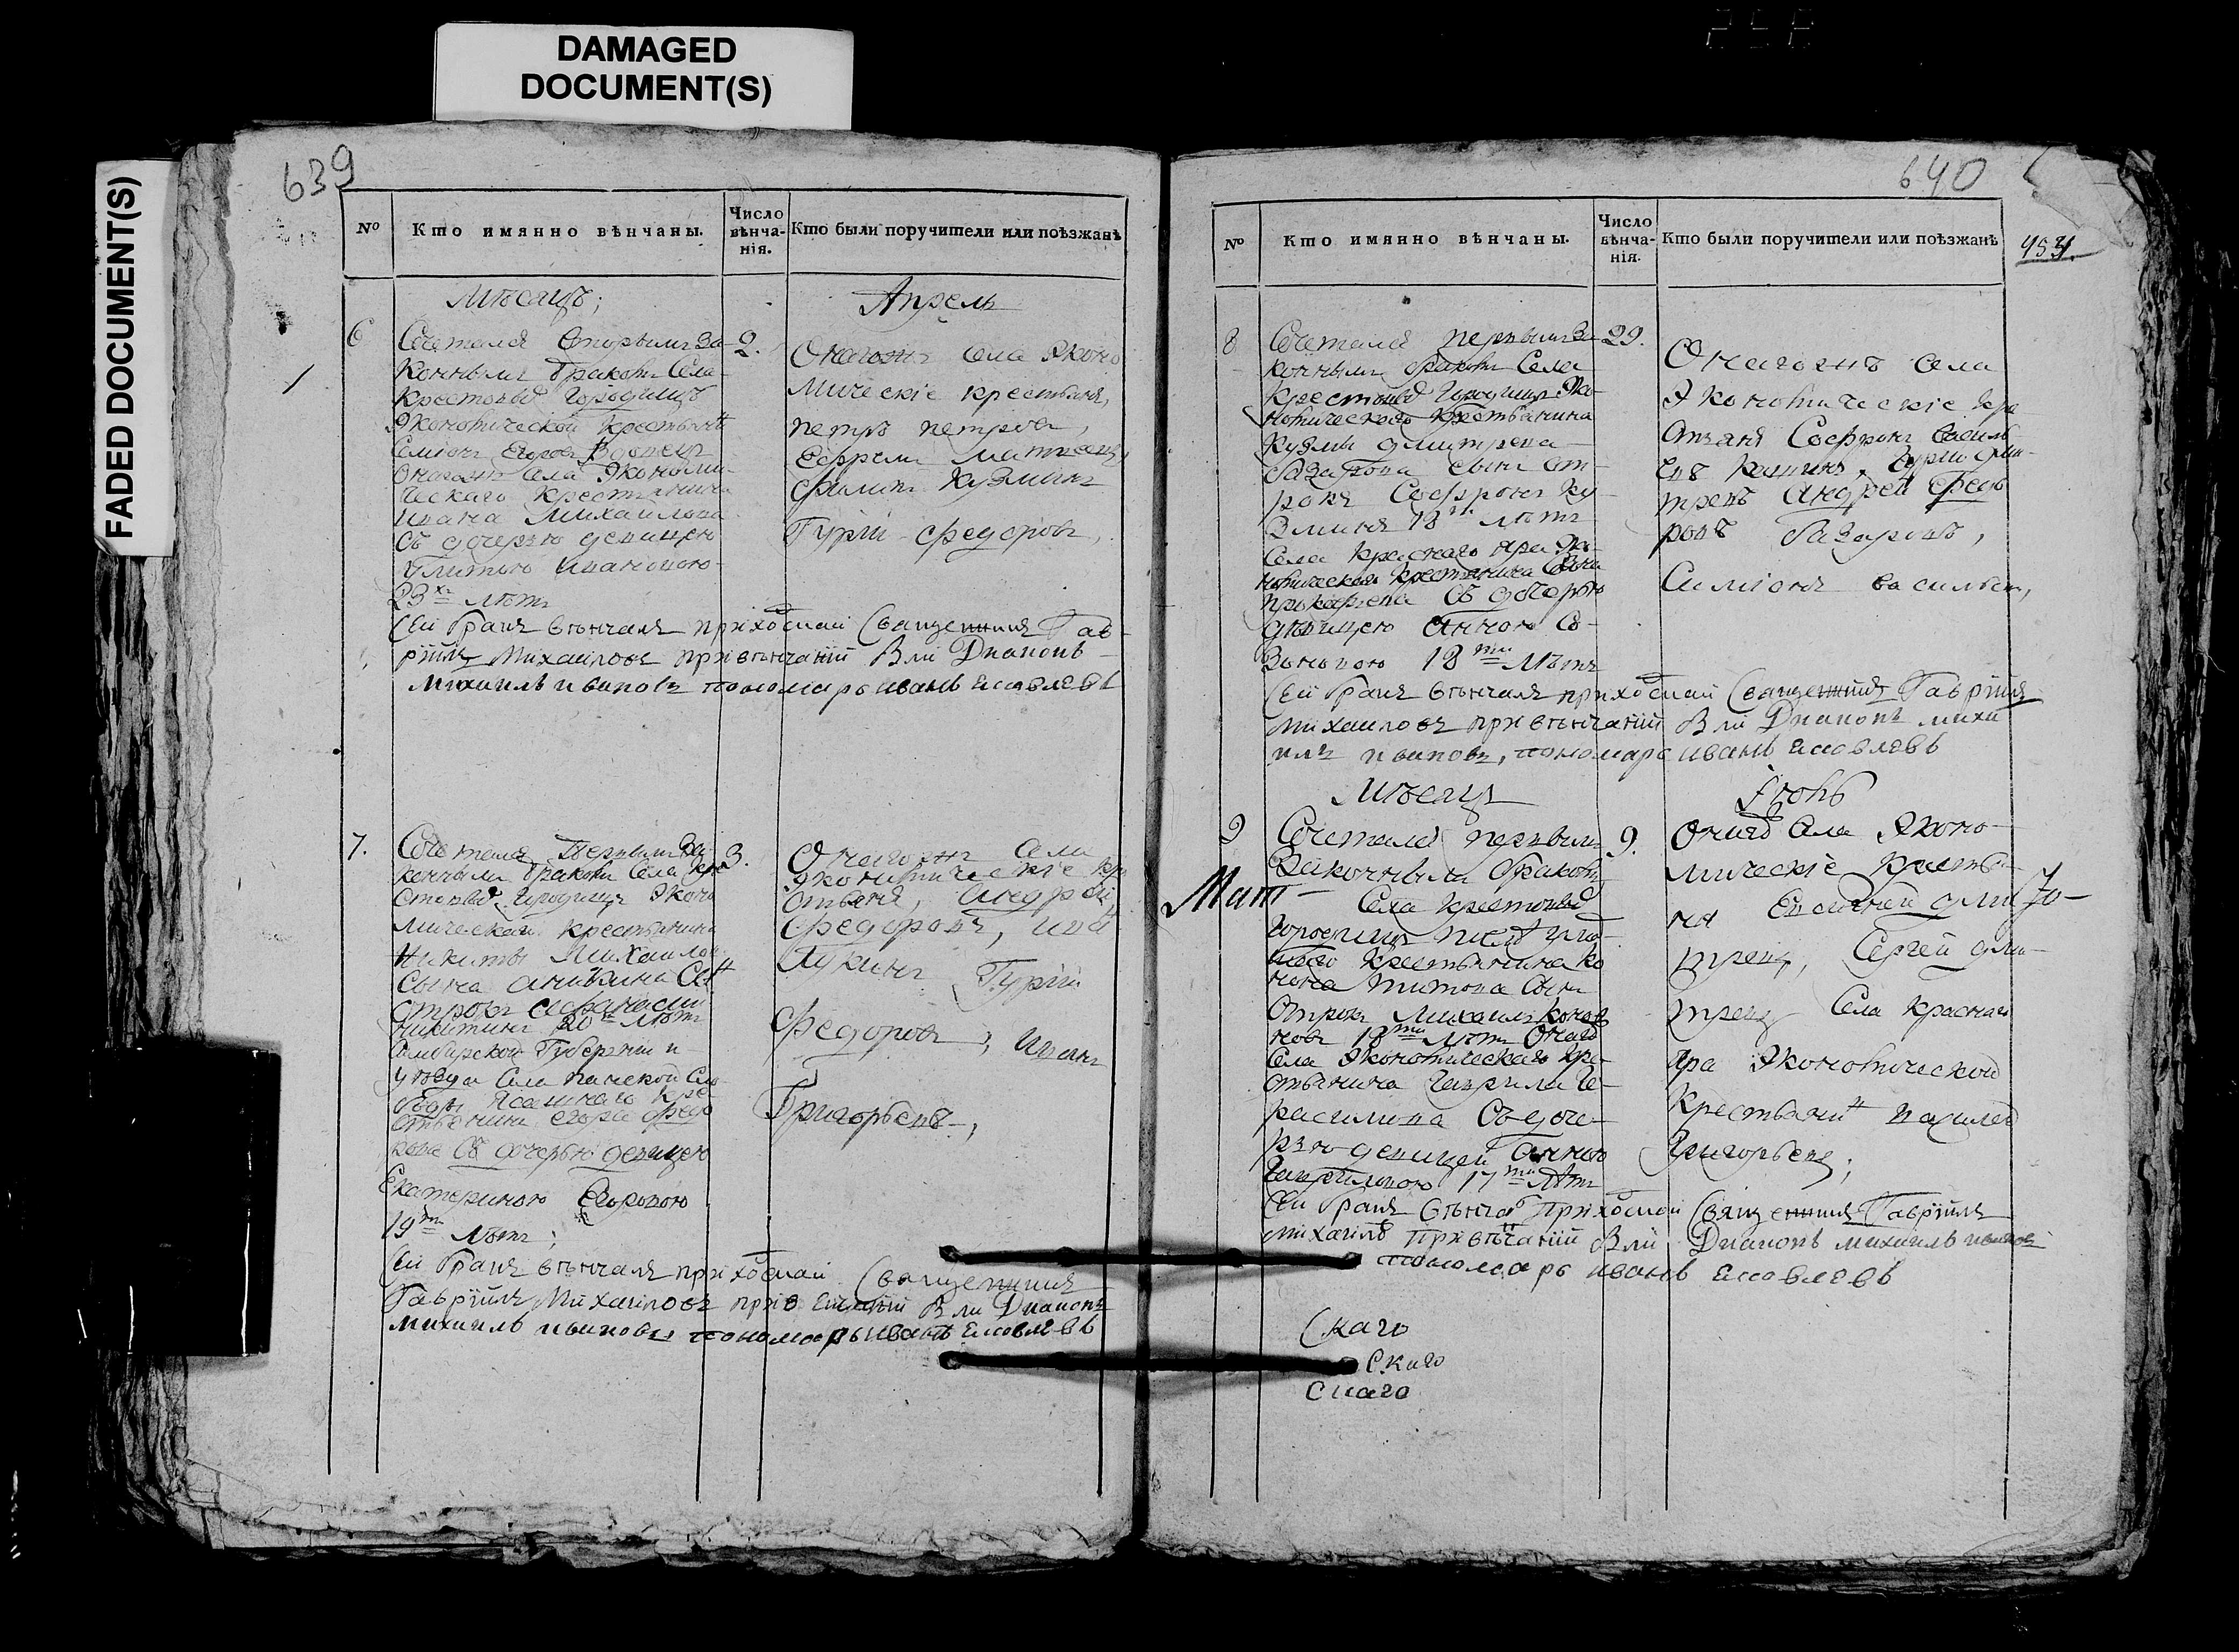 DAMAGED
DOCUMENT(S)
FADED DOCUMENT(S)
639
№
Кто имянно вѣнчаны.
Число
вѣнча-
нія.
Кто были поручители или поѣзжанѣ
Мѣсяцъ;
Апрель
6
Сочетался вторымъ За-
коннымъ бракомъ Села
Крестовыя Городищъ
Экономической крестьянинъ
Симіонъ Егоровъ Вдовецъ
Онагожъ Села Экономи-
ческаго крестьянина
Ивана Михаилова
Съ дочерью девицею
Улитою Ивановою
23хъ лѣтъ
2.
Онагожъ села Эконо
мическіе крестьяня,
петръ петровъ,
Ефремъ Матвеевъ,
Филипъ Кузминъ
Гурій Федоровъ,
Сей бракъ вѣнчалъ приходскай Священникъ Гав-
рійлъ Михаиловъ при вѣнчаній были Дьяконъ
Михаилъ Ивановъ пономарь иванъ Яковлевъ
7.
Сочетался Первымъ За-
коннымъ бракомъ Села Кре
стовыя Городищъ Эконо
мическаго крестьянина
Никиты Михаилова
Сына
Отрокъ Афанасій
Никитинъ 20ти лѣтъ
Симбирской Губерніи и
уѣзда Села
Ясашнаго Кре-
стьянина Егора Федо
рова Съ дочерью девицею
Екатериною Егоровою
19ти лѣтъ;
3.
Онагожъ Села
Экономическіе кре
стьяня, Андрей
Федоровъ,
Лукинъ Гурій
Федоровъ, Иванъ
Григорьевъ,
Сей бракъ вѣнчалъ приходскай Священникъ
Гаврійлъ Михаиловъ при вѣнчаній были Дьяконъ
Михаилъ Ивановъ пономарь иванъ Яковлевъ
640
№
Кто имянно вѣнчаны.
Число
вѣнча-
нія.
Кто были поручители или поѣзжанѣ
8
Сочетался первымъ За-
коннымъ бракомъ Села
Крестовыя Городищъ Эко-
номическаго Крестьянина
Кузмы Дмитрева
Базарова сынъ От-
рокъ Софронъ Ку-
зминъ 18ти лѣтъ
Села Краснаго Яра Эко-
номическаго Крестьянина
Прокофьева Съ дочерью
дѣвицею Анною Со-
зоновою 18ти лѣтъ
29.
Онагожъ села
Экономическіе кре
стьяня Софронъ Василь-
евъ Гурій Дми-
тревъ Андрей Федо
ровъ Базаровъ,
Симіонъ Васильевъ,
Сей бракъ вѣнчалъ приходскай Священникъ Гаврійлъ
Михаиловъ при вѣнчаній были Дьяконъ Миха
илъ Ивановъ, пономарь иванъ Яковлевъ
Мѣсяцъ
Іюнь
9
Сочетался первымъ
Законнымъ бракомъ
Села Крестовыя
Городищъ
Крестьянина Ко
нона Титова Сынъ
Отрокъ Михаилъ Коно
новъ 18ти лѣтъ Онаго
Села Экономическаго Кре-
стьянина Гаврила Ге-
расимова Съ доче-
рью девицей Анною
Гавриловою 17ти лѣтъ
9.
Онаго Села Эконо-
мическіе Крестья-
ня Евсигней Дми
тревъ, Сергей Дми-
тревъ Села Краснаго
Яра Экономической
Крестьянинъ
Григорьевъ;
Сей бракъ вѣнчалъ приходскай Священникъ Гаврійлъ
Михаилъ при вѣнчаній были Дьяконъ Михаилъ Ивановъ
пономарь иванъ Яковлевъ
Скаго
Скаго
скаго